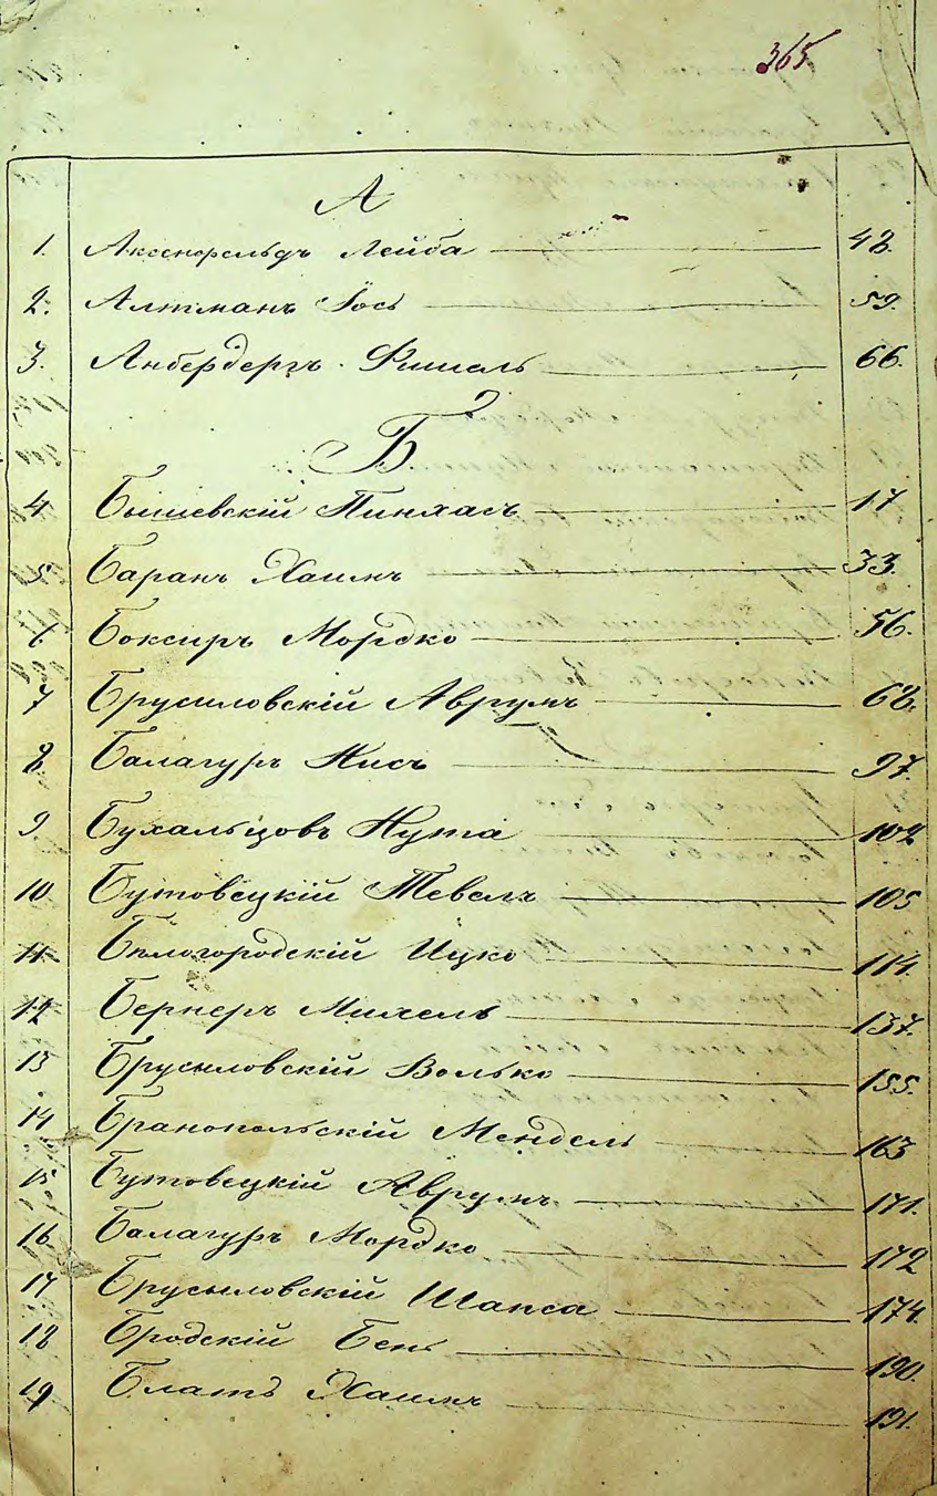 365.
А
1. Аксенфельдъ Лейба 48.
2. Алтманъ Іось 59.
3. Анбердергъ Фишель 66.
Б
4 Бышевскій Пинхасъ 17
5. Баранъ Хаимъ 33.
6 Боксиръ Мордко 56.
7 Брусиловскій Аврумъ 68.
8 Балагуръ Нисъ 97.
9. Бухальцовъ Нута 102
10. Бутовецкій Тевель 105
11. Бѣлогородскій Ицко 114.
12 Бернеръ Михель 137.
13 Брусиловскій Волько 155.
14 Бранопольскій Мендель 163
15 Бутовецкій Аврумъ 171.
16 Балагуръ Мордко 172
17 Брусиловскій Шапса 174.
18 Бродскій Бень 190.
19 Блатъ Хаимъ 191.